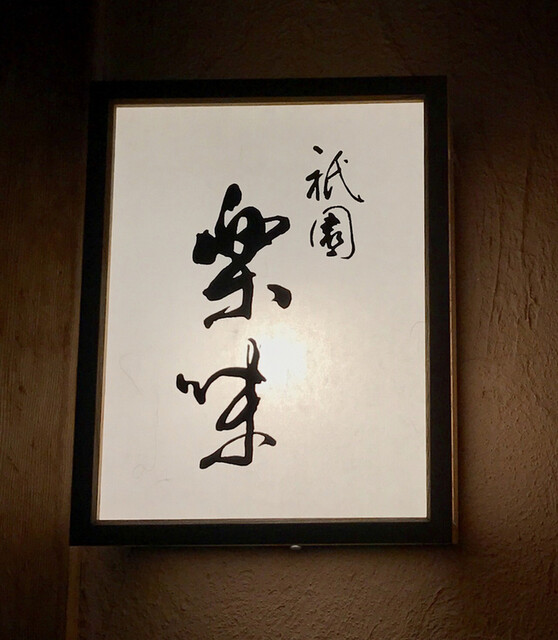 祇園
楽味